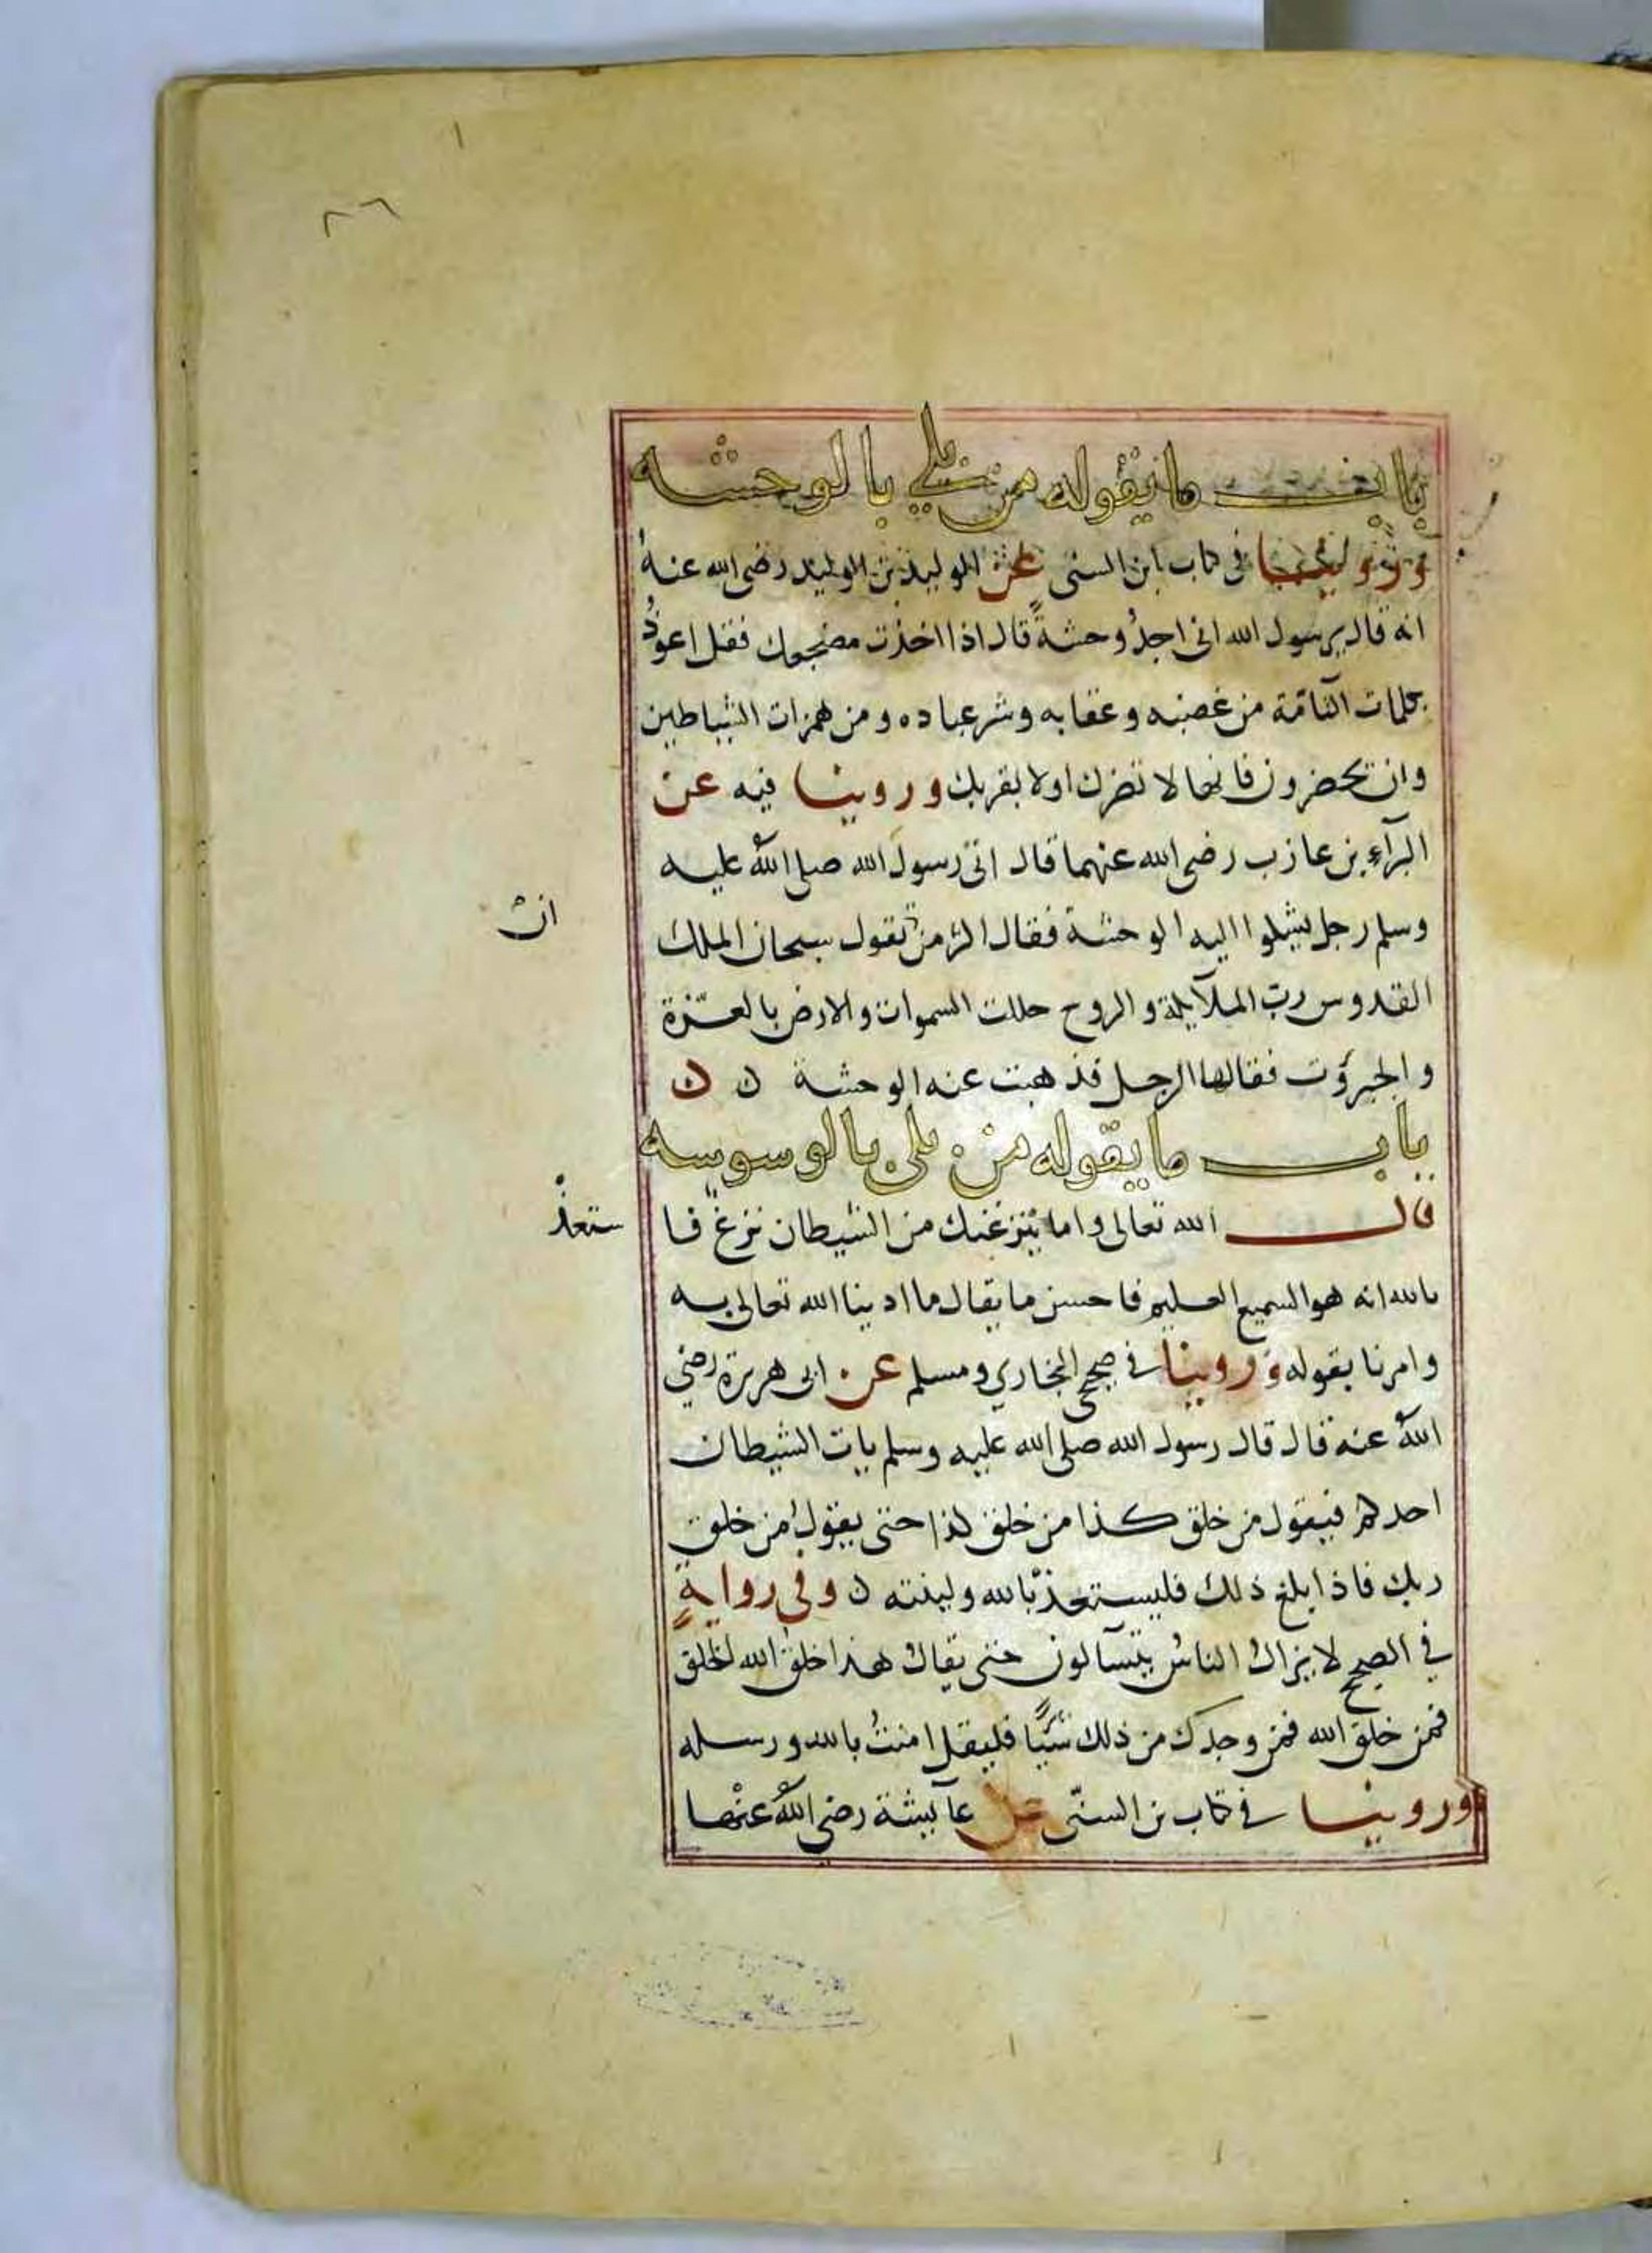 ٨٦
باب ما يقوله من بلي بالوحشه
وروينا في كتاب ابن السنى عن الوليد بن الوليد رضى الله عنه
انه قال يرسول الله انى اجد وحشةً قال اذا اخذت مضجعك فقل اعوذُ
بكلمات التآمّة من غضبه وعقابه وشر عباده ومن همزات الشياطين
وان يحضرون فانها لا تضرك اولا يقربك وروينا فيه عن
البرآء بن عازب رضى الله عنهما قال اتى رسول الله صلى اللهُ عليه
وسلم رجل يشلوا اليه الوحشة فقال اكثر من تقول سبحان الملك
ان
القدوس ربّ الملآيكة والروح جللت السموات والارض بالعزّة
والجبروت فقالها الرجل فذهبت عنه الوحشة ن ن
باب ما يقوله من بلى بالوسوسه
قال الله تعالى واما ينزغنك من الشيطان نزغ فا
ستعذ
بالله انه هو السميع العليم فاحسن ما يقال ما ادبنا الله تعالى به
وامرنا بقوله وروينا في صحيح البخاري ومسلم عن ابى هريرة رضي
اللهُ عنه قال قال رسول الله صلى الله عليه وسلم يات الشيطان
احدكم فيقول من خلق كذا من خلق كذا حتى يقول من خلق
ربك فاذا بلغ ذلك فليستعذ بالله ولينته ن وفي روايةٍ
في الصحيح لا يزالُ الناسُ يتسآلون حتى يقالُ هذا خلق الله الخلق
فمن خلق الله فمن وجد من ذلك شيًّا فليقل امنتُ بالله ورسله
وروينا في كتاب بن السنّى عن عآيشة رضى اللهُ عنها